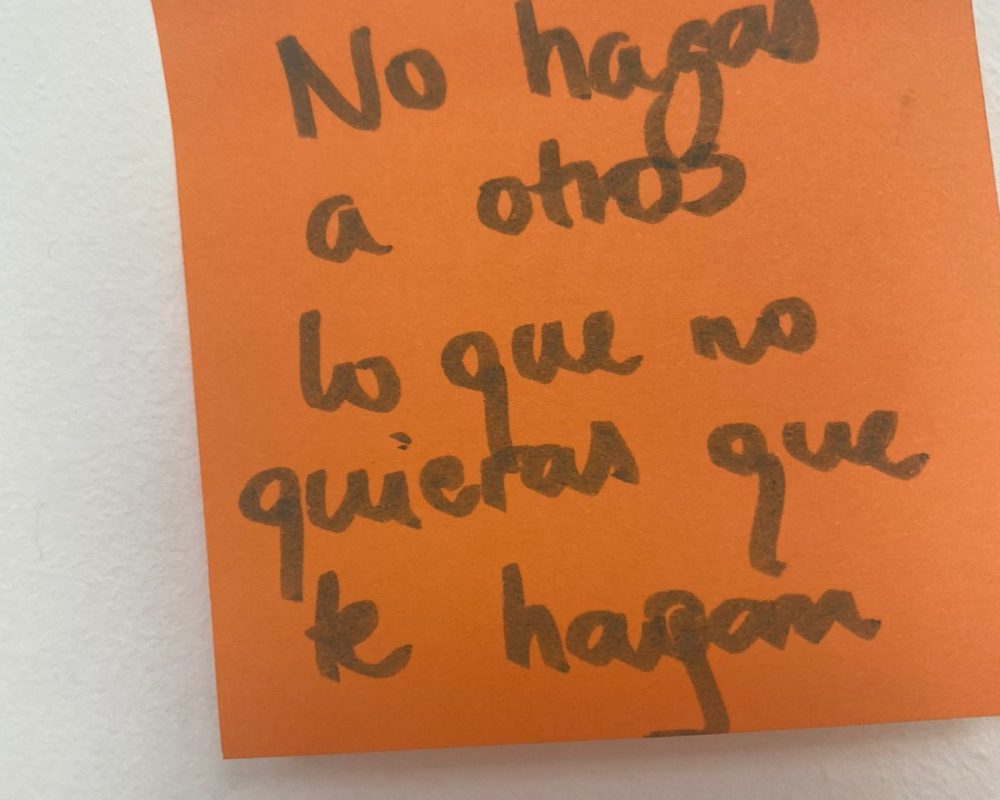 No hagas
a otros
lo que no
quieras que
te hagan